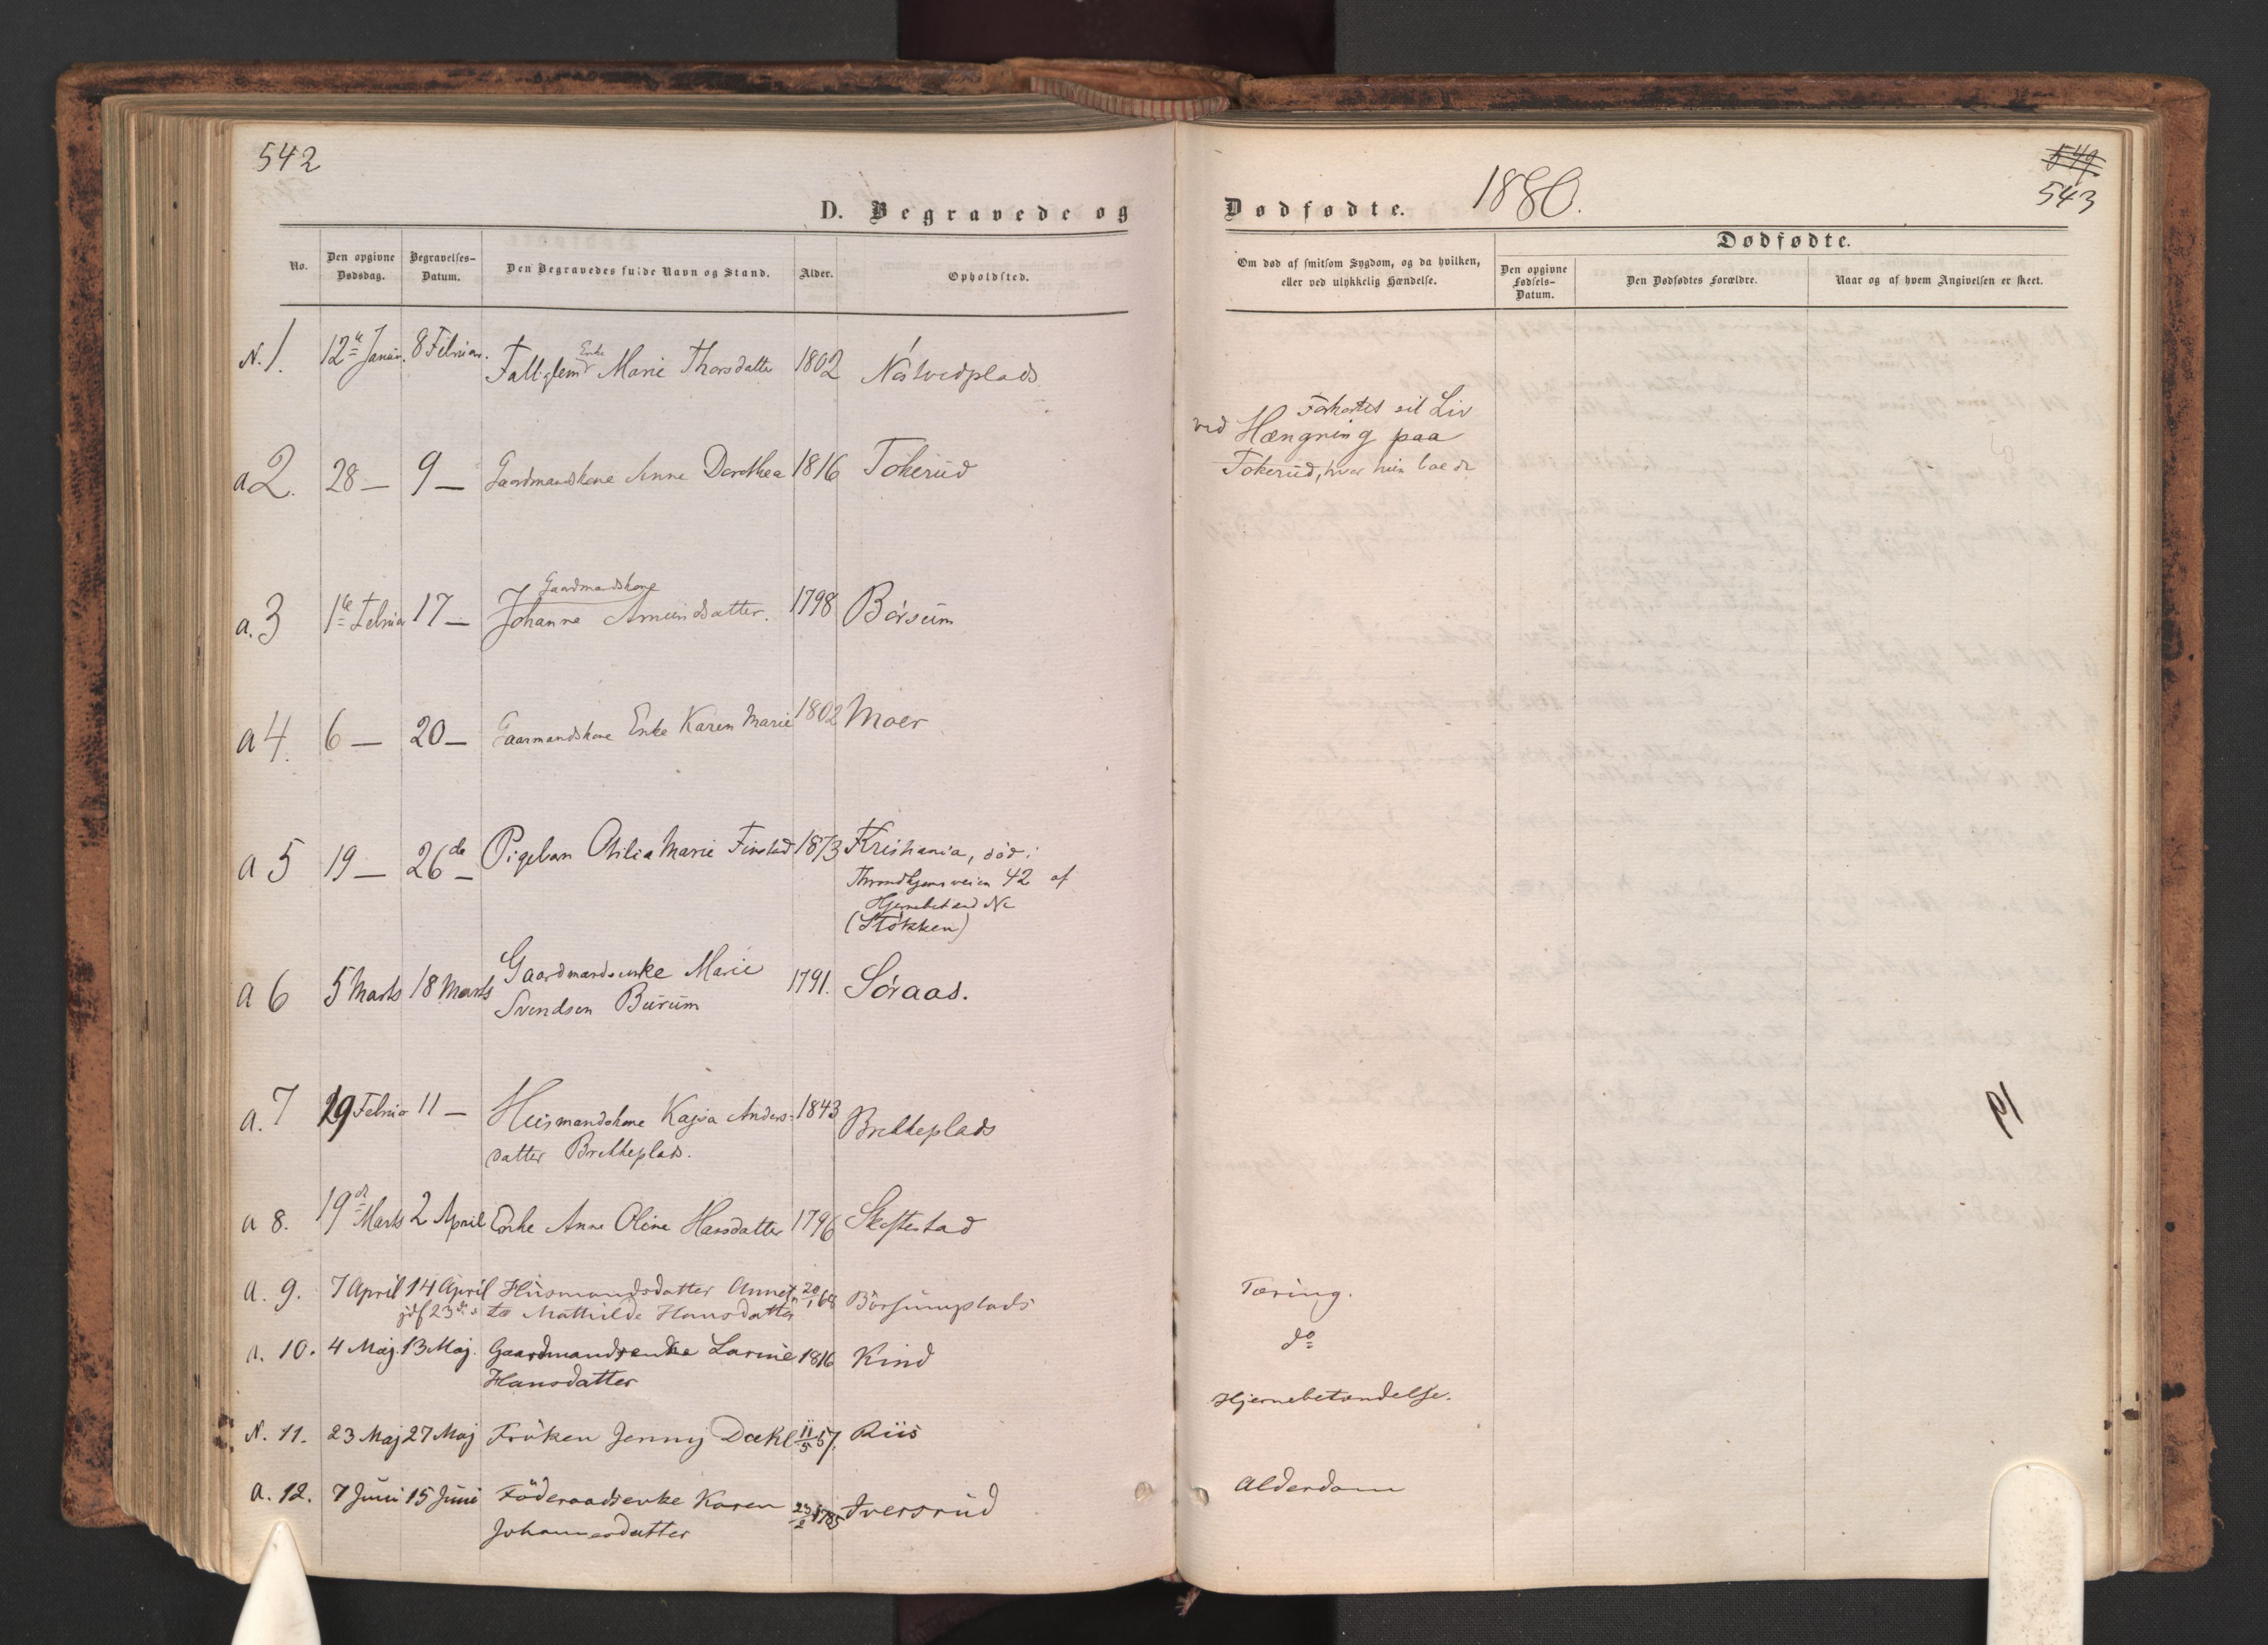 542
D. Begravede og
No.
Den opgivne Dødsdag.
Begravelses-Datum.
Den Begravedes fulde Navn og Stand.
Alder.
Opholdsted.
N. 1. 12te Januar. 8 Februar. Fattiglem Enke Marie Thorsdatter 1802 Næstvedplads
a 2. 28 — 9 — Gaardmandskone Anne Dorothea 1816 Tokerud
a. 3 1te Februar 17 — Gaardmandskone
Johanne Amundsdatter. 1798 Børsum
a 4. 6 — 20 — Gaarmandskone Enke Karen Marie 1802 Moer
a 5 19 — 26de — Pigebarn Otilia Marie Finstad 1873 Kristiania, død i
Throndhjemsveien 42 af
(Støkken)
a 6 5 Marts 18 Marts Gaardmandsenke Marie
Svendsen Burum 1791. Søraas.
a. 7 29 Februar 11 — Husmandskone Kajsa Anders-
datter Brekkeplads. 1843 Brekkeplads
a 8. 19de Marts 2 April Enke Anne Oline Hansdatter 1796 Skeftestad
a. 9. 7 April 14 April Husmandsdatter Annet-
jdf 23de te Mathilde Hansdatter 20/1 68 Børsumplads
a. 10. 4 Maj. 13 Maj. Gaardmandsenke Larine 1816 Kind
Hansdatter
N. 11. 23 Maj 27 Maj Frøken Jenny Dæhl 11/5 57. Riis
a. 12. 7 Juni 15 Juni Föderaadsenke Karen 23/2 1785 Iversrud
Johannesdatter
Dødfødte. 1880.
549
543
Om død af smitsom Sygdom, og da hvilken,
eller ved ulykkelig Hændelse.
Dødfødte.
Den opgivne Fødsels-Datum.
Den Dødfødtes Forældre.
Naar og af hvem Angivelsen er skeet.
Forkortet sit Liv
ved Hængning paa
Tokerud, hvor hun boede
Tæring.
do
Hjernebetændelse.
Alderdom